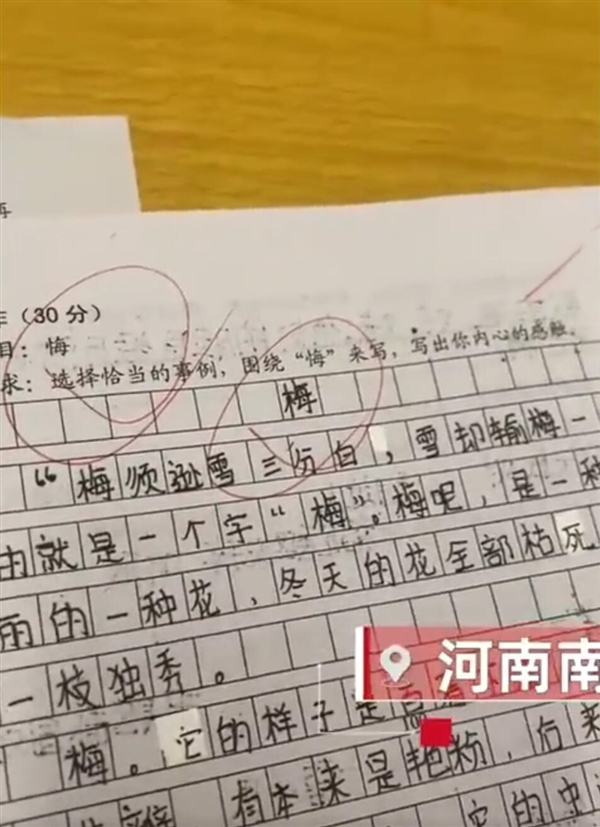 (30分)
目：悔
求：选择恰当的事例，围绕“悔”来写，写出你内心的感触。
梅
“梅须逊雪三份白，雪却输梅一
由就是一个字“梅”。梅呢，是一种
雨的一种花，冬天的花全部枯死
一枝独秀。
河南南
梅。它的样子是
看本来是艳粉，后来
它的